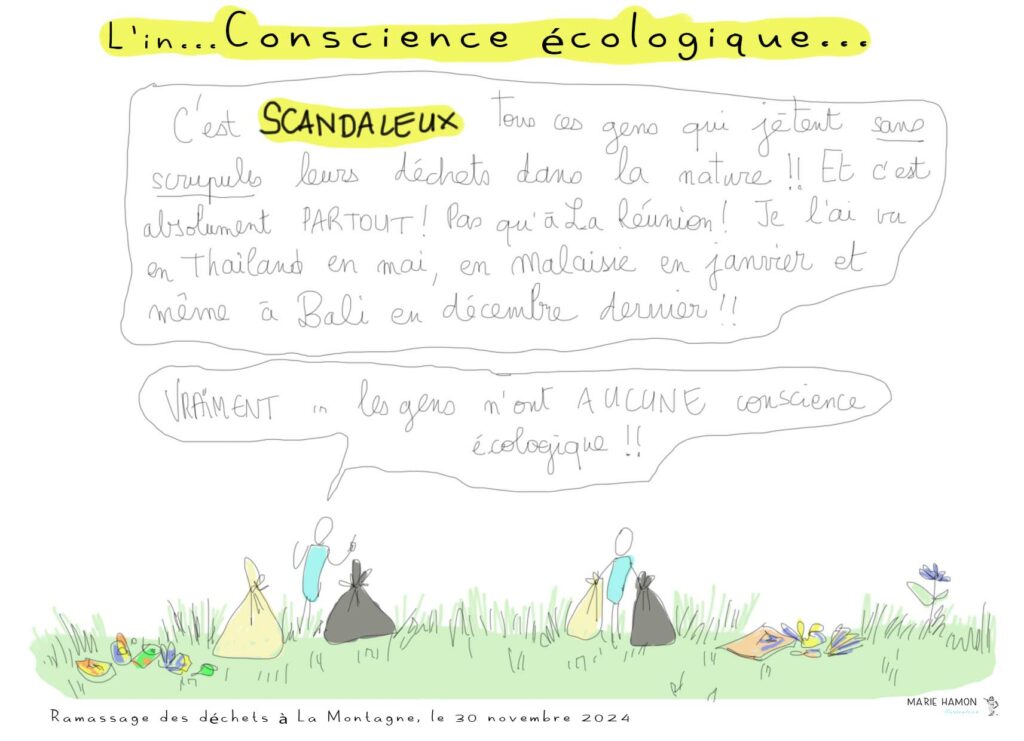 L'in...Conscience écologique...
C'est SCANDALEUX Tous ces gens qui jètent sans
scrupules leurs déchets dans la nature !! Et c'est
absolument PARTOUT ! Pas qu'à La Réunion ! Je l'ai vu
en Thaïland en mai, en Malaisie en janvier et
même à Bali en décembre dernier !!
VRAIMENT ... les gens n'ont AUCUNE conscience
écologique !!
MARIE HAMON
Ramassage des déchets à La Montagne, le 30 novembre 2024